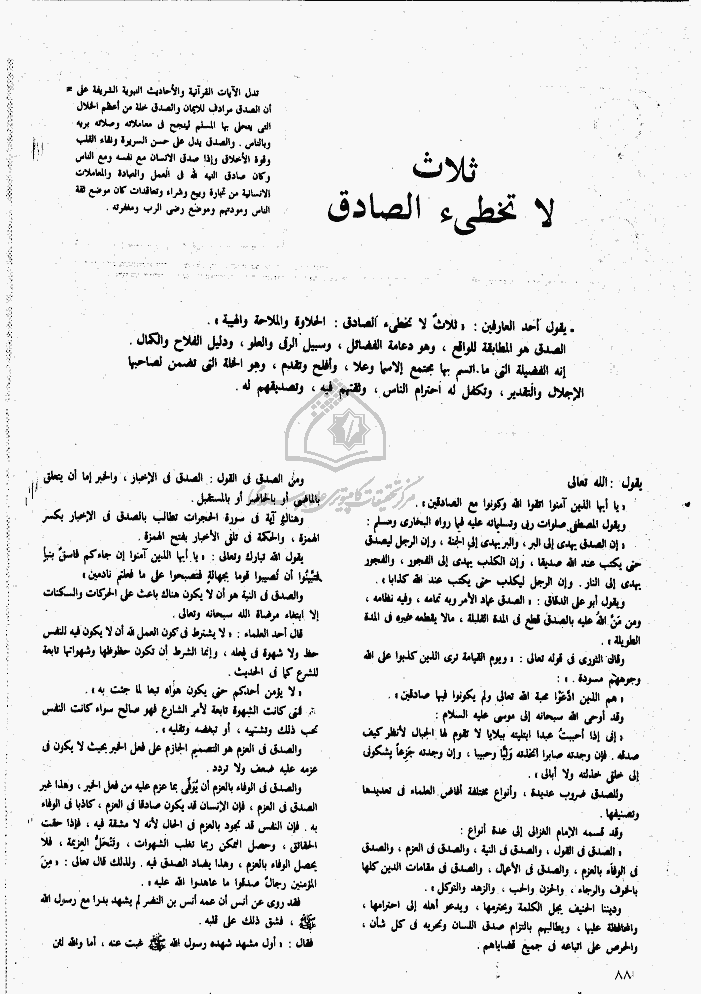 ثلاث
لا تخطىء الصادق
تدل الآيات القرآنية والأحاديث النبوية الشريفة على *
أن الصدق مرادف للايمان والصدق خلة من أعظم الخلال
التى يتحلى بها المسلم لينجح فى معاملاته وصلاته بربه
وبالناس . والصدق يدل على حسن السريرة ونقاء القلب
وقوة الأخلاق وإذا صدق الانسان مع نفسه ومع الناس
وكان صادق النيه لله فى العمل والعبادة والمعاملات
الانسانية من تجارة وبيع وشراء وتعاقدات كان موضع ثقة
الناس ومودتهم وموضع رضى الرب ومغفرته .
يقول أحد العارفين : « ثلاثٌ لا تخطىء الصادق : الحلاوة والملاحة والهيبة » .
الصدق هو المطابقة للواقع ، وهو دعامة الفضائل ، وسبيل الرقى والعلو ، ودليل الفلاح والكمال .
إنه الفضيلة التى ما اتسم بها مجتمع إلاسما وعلا ، وأفلح وتقدم ، وهو الخلة التى تضمن لصاحبها
الإجلال والتقدير ، وتكفل له احترام الناس ، وثقتهم فيه ، وتصديقهم له .
يقول الله تعالى :
« يا أيها الذين آمنوا اتقوا الله وكونوا مع الصادقين » .
ويقول المصطفى صلوات ربى وتسليماته عليه فيما رواه البخارى ومسلم :
« إن الصدق يهدى إلى البر ، والبر يهدى إلى الجنة ، وإن الرجل ليصدق
حتى يكتب عند الله صديقا ، وإن الكذب يهدى إلى الفجور ، والفجور
يهدى إلى النار . وإن الرجل ليكذب حتى يكتب عند الله كذابا » .
ويقول أبو على الدقاق : « الصدق عماد الأمر وبه تمامه ، وفيه نظامه ،
ومن مَنَّ اللهُ عليه بالصدق قطع فى المدة القليلة ، مالا يقطعه غيره فى المدة
الطويلة » .
وقال الثورى فى قوله تعالى : « ويوم القيامة ترى الذين كذبوا على الله
وجوههم مسودة » :
« هم الذين ادَّعَوْا محبة الله تعالى ولم يكونوا فيها صادقين » .
وقد أوحى الله سبحانه إلى موسى عليه السلام :
« إنى إذا أحببتُ عبدا ابتليته ببلايا لا تقوم لها الجبال لأنظر كيف
صدقه . فإن وجدته صابرا اتخذته وَلِيًّا وحبيبا ، وإن وجدته جَزِعاً يشكونى
إلى خلقى خذلته ولا أبالى » .
وللصدق ضروب عديدة ، وأنواع مختلفة أفاض العلماء فى تعديدها
وتصنيفها .
وقد قسمه الإمام الغزالى إلى عدة أنواع :
« الصدق فى القول ، والصدق فى النية ، والصدق فى العزم ، والصدق
فى الوفاء بالعزم ، والصدق فى الأعمال ، والصدق فى مقامات الدين كلها
بالخوف والرجاء ، والحزن والحب ، والزهد والتوكل » .
وديننا الحنيف يجل الكلمة ويحترمها ، ويدعو أهله إلى احترامها ،
والمحافظة عليها ، ويطالبهم بالتزام صدق اللسان وتحريه فى كل شأن ،
والحرص على اتباعه فى جميع قضاياهم .
ومن الصدق فى القول : الصدق فى الإخبار ، والخبر إما أن يتعلق
بالماضى أو بالحاضر أو بالمستقبل .
وهناك آية فى سورة الحجرات تطالب بالصدق فى الإخبار بكسر
الهمزة ، والحكمة فى تلقى الأخبار بفتح الهمزة .
يقول الله تبارك وتعالى : « يا أيها الذين آمنوا إن جاءكم فاسقٌ بنبأٍ
فتَبَيَّنُوا أن تُصيبوا قوما بجهالةٍ فتصبحوا على ما فعلتم نادمين »
والصدق فى النية هو أن لا يكون هناك باعث على الحركات والسكنات
إلا ابتغاء مرضاة الله سبحانه وتعالى .
قال أحد العلماء : « لا يشترط فى كون العمل لله أن لا يكون فيه للنفس
حظ ولا شهوة فى فعله ، وإنما الشرط أن تكون حظوظها وشهواتها تابعة
للشرع كما فى الحديث .
« لا يؤمن أحدكم حتى يكون هواه تبعا لما جئت به » .
فمتى كانت الشهوة تابعة لأمر الشارع فهو صالح سواء كانت النفس
تحب ذلك وتشتهيه ، أو تبغضه وتقليه » .
والصدق فى العزم هو التصميم الجازم على فعل الخير بحيث لا يكون فى
عزمه عليه ضعف ولا تردد .
والصدق فى الوفاء بالعزم أن يُوَفَّى بما عزم عليه من فعل الخير ، وهذا غير
الصدق فى العزم ، فإن الإنسان قد يكون صادقا فى العزم ، كاذبا فى الوفاء
به . فإن النفس قد تجود بالعزم فى الحال لأنه لا مشقة فيه ، فإذا حقت
الحقائق ، وحصل التمكن ربما تغلب الشهوات ، وتنحل العزيمة ، فلا
يحصل الوفاء بالعزم ، وهذا يضاد الصدق فيه . ولذلك قال تعالى : « مِنَ
المؤمنين رجالٌ صدقُوا ما عاهدوا الله عليه » .
فقد روى عن أنس أن عمه أنس بن النضر لم يشهد بدرا مع رسول الله
ﷺ ، فشق ذلك على قلبه .
فقال : « أول مشهد شهده رسول الله ﷺ غبت عنه ، أما والله لئن
٨٨